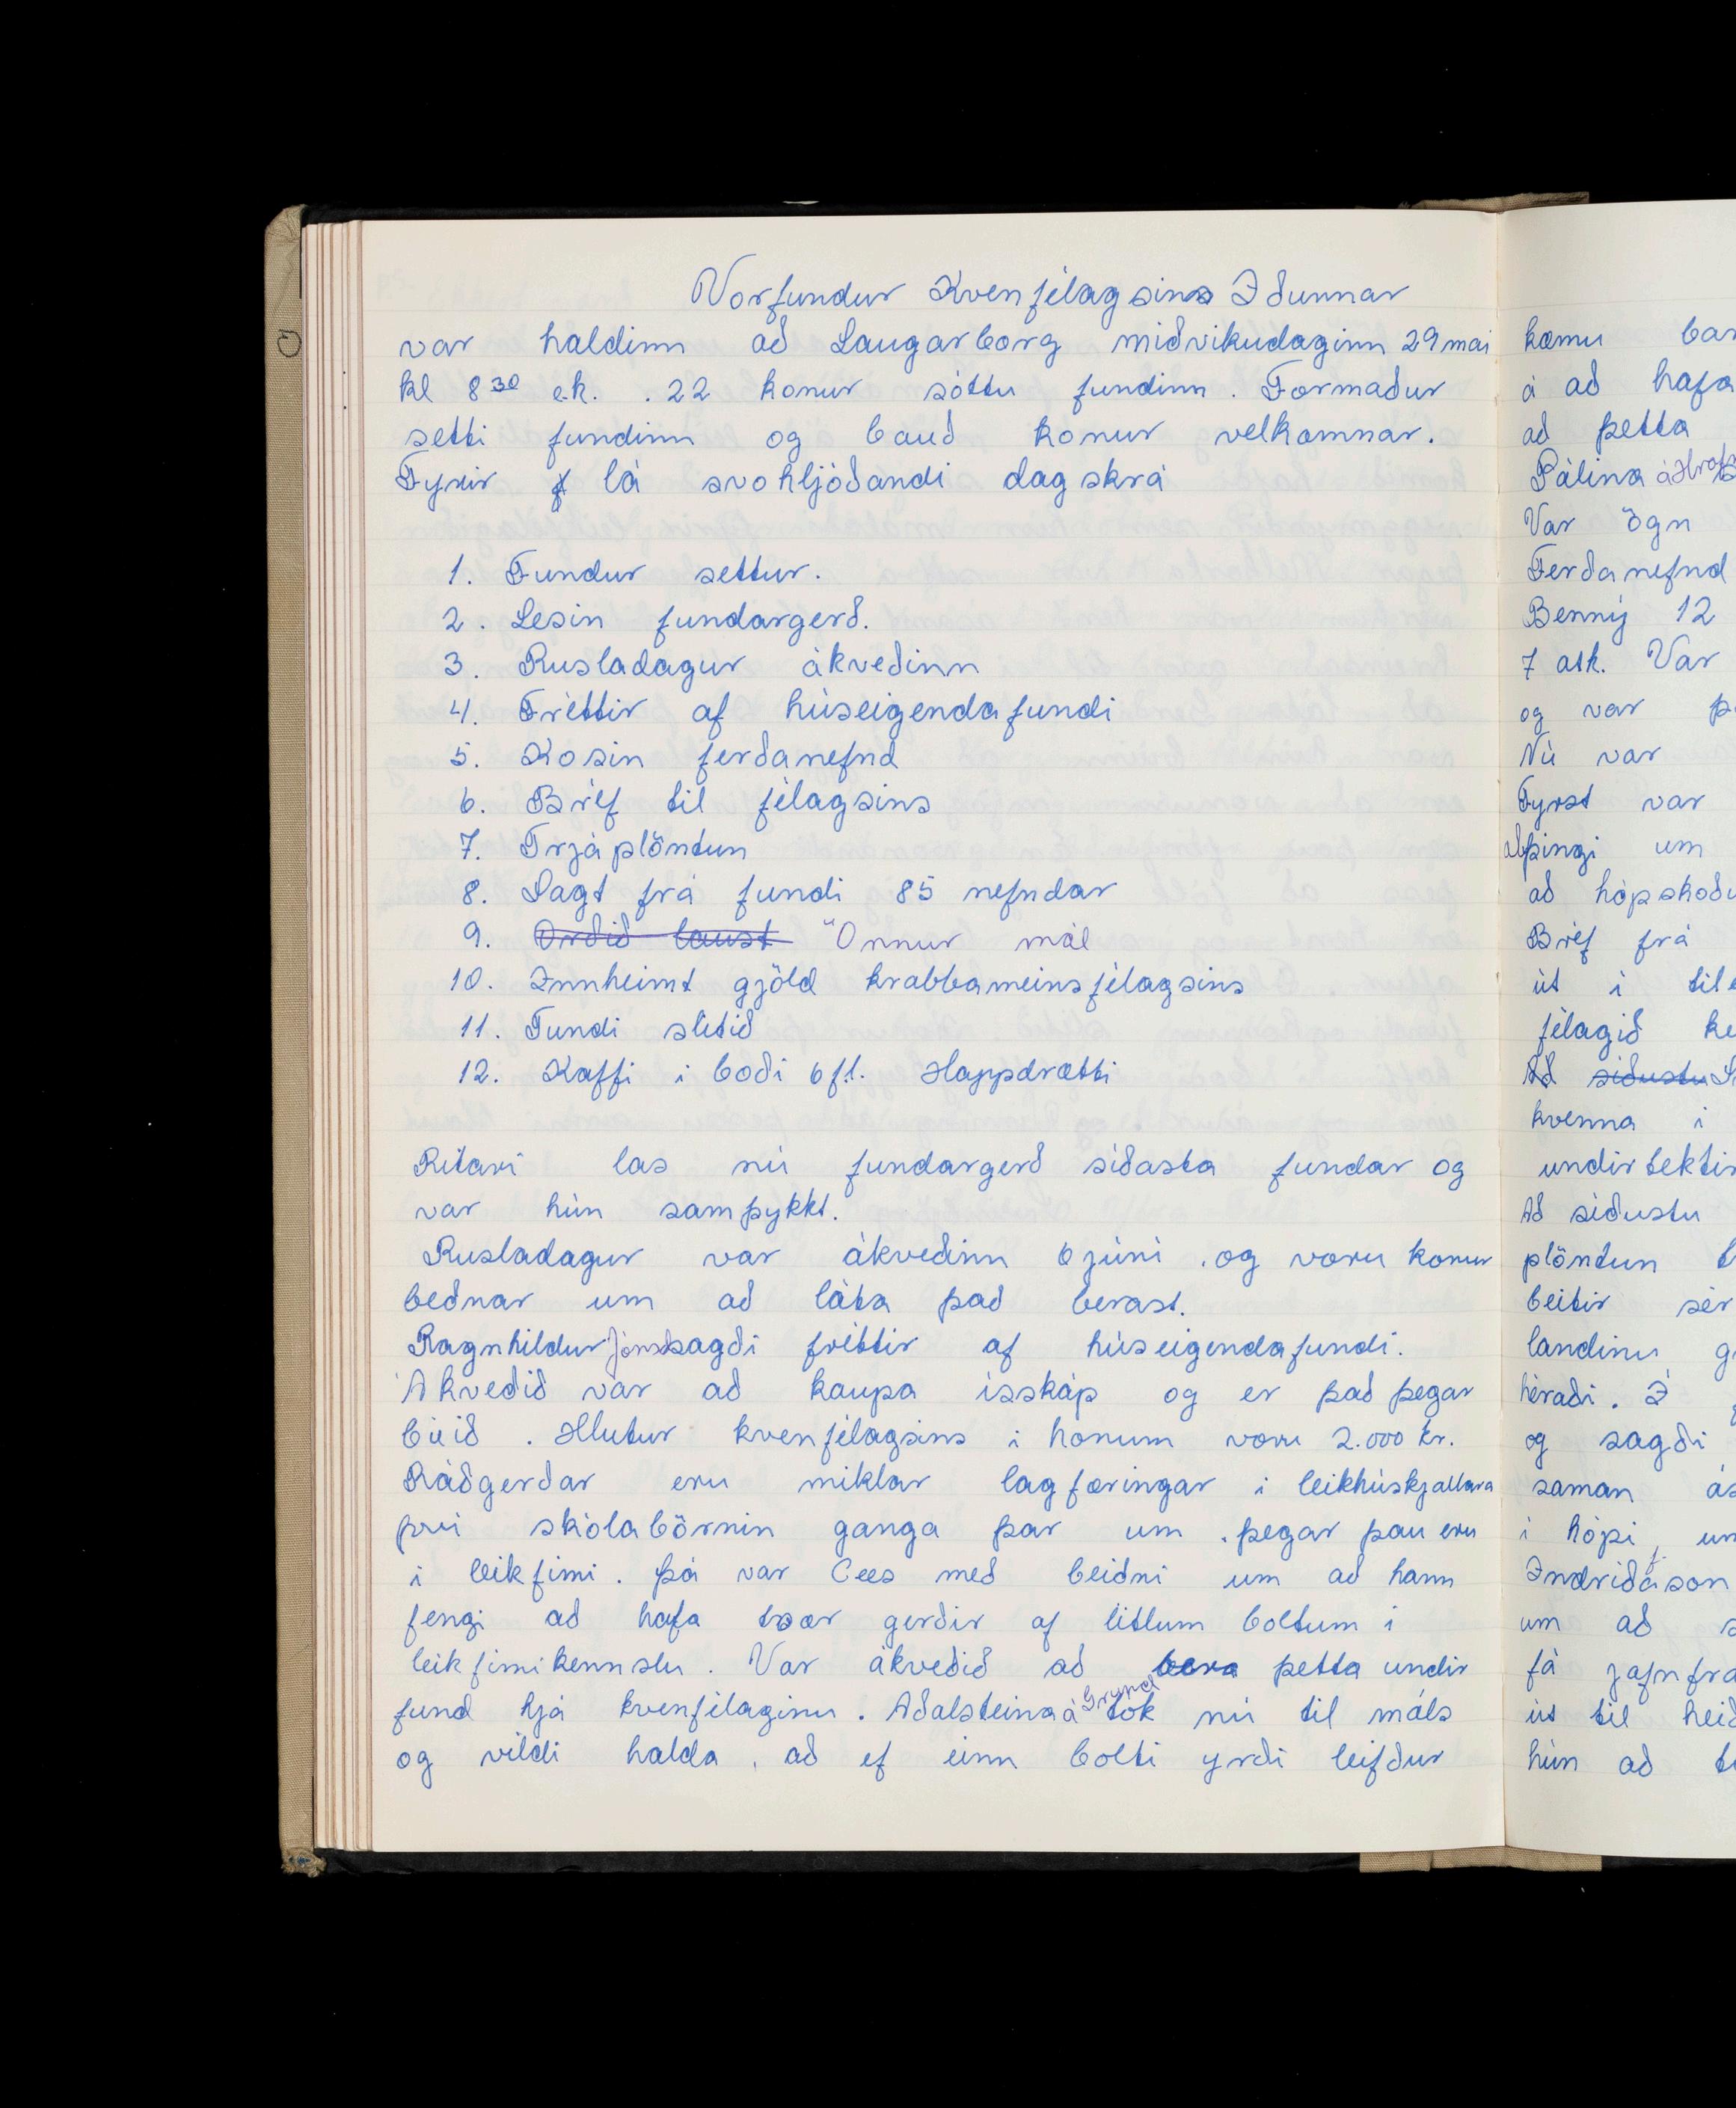 Vorfundur Kvenfélagsins Iðunnar
var haldinn að Laugarborg miðvikudaginn 29 mai
kl 8 30 e.k. . 22 konur sóttu fundinn. Formaður
setti fundinn og bauð konur velkomnar.
Fyrir lá svohljóðandi dagskrá
1. Fundur settur.
2. Lesin fundargerð.
3. Rusladagur ákveðinn
4. Fréttir af húseigendafundi
5. Kosin ferðanefnd
6. Bréf til félagsins
7. Trjáplöntun
8. Sagt frá fundi 85 nefndar
9. Orðið laust Önnur mál
10. Innheimt gjöld krabbameinsfélagsins
11. Fundi slitið
12. Kaffi í boði 6 fl. Happdrætti
Ritari las nú fundargerð síðasta fundar og
var hún samþykkt.
Rusladagur var ákveðinn 6 júní . og voru konur
beðnar um að láta það berast.
Ragnhildur Jónsd sagði fréttir af húseigendafundi.
Ákveðið var að kaupa ísskáp og er það þegar
búið . Hlutur kvenfélagsins í honum voru 2.000 kr.
Ráðgerðar eru miklar lagfæringar í leikhúskjallara
því skólabörnin ganga þar um . þegar þau eru
í leikfimi . þá var Cees með beiðni um að hann
fengi að hafa tvær gerðir af litlum boltum í
leikfimikennslu . Var ákveðið að bera þetta undir
fund hjá kvenfélaginu . Aðalsteina á Grund tók nú til máls
og vildi halda , að ef einn bolti yrði leifður
kæmu
á að hafa
að þetta
Pálína á
Var ögn
Ferðanefnd
Benný 12
7 atk. Var
og var
Nú var
Fyrst var
alþingi um
að
Bréf frá
út í
félagið
Að síðustu
kvenna í
undirtektir
Að síðustu
plöntun
beitir sér
landinu
héraði . Í
og sagði
saman
í hópi ,
Indriðason
um að
fá
út til
hún að